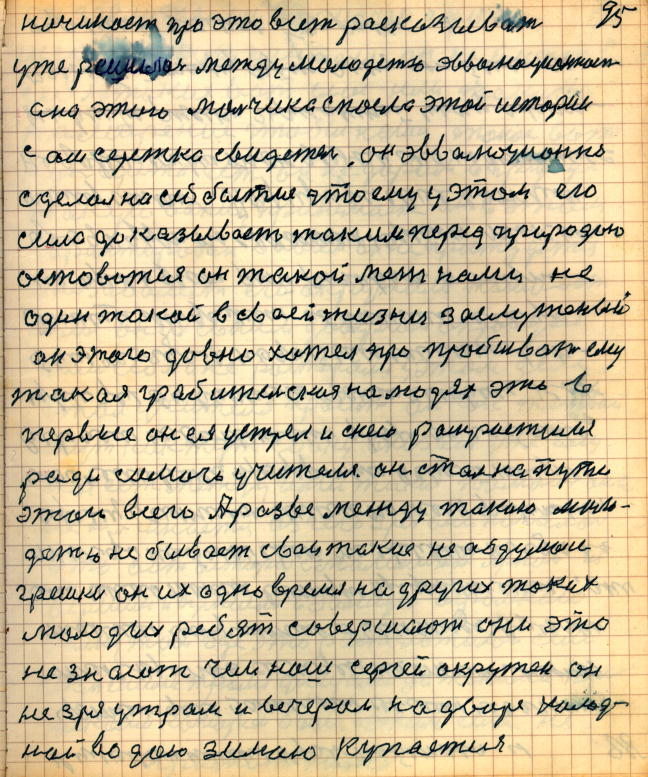 95
начинает про это всем расказыват
уже решился между молодежю эвволюционност
а на этого малчика споела этой истории
сам сережка свидетел, он эвволюционно
сделал на себе бытие што ему у этом его
сило доказывает таким перед природою
остовотся он такой меж нами не
один такой в своей жизни заслуженый
он этого довно хотел про пробыват ему
такая грабителская на людях это в
первые он ея устрел и снею
ради самого учителя. он стал на пути
этом всего А разве между такою моло-
дежю не бывает свои такие не абдумои
грешки он их одно время на других таких
молодых ребят совершают они это
не знают чем наш сергей окружен он
не зря утрам и вечером на дворе холод-
ной водою зимою купается